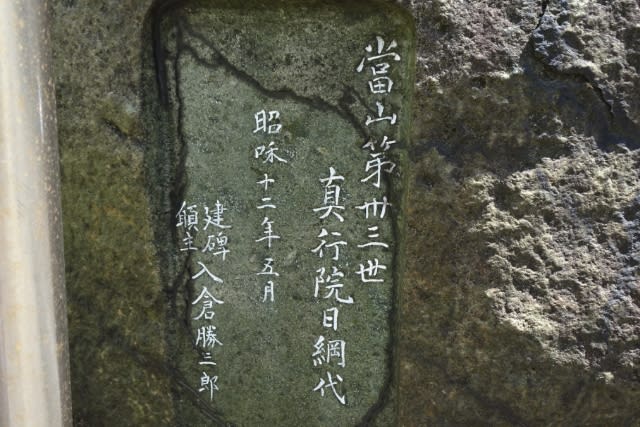 當山第卅三世
真行院日綱代
昭和十二年五月
建碑
願主
入倉勝二郎